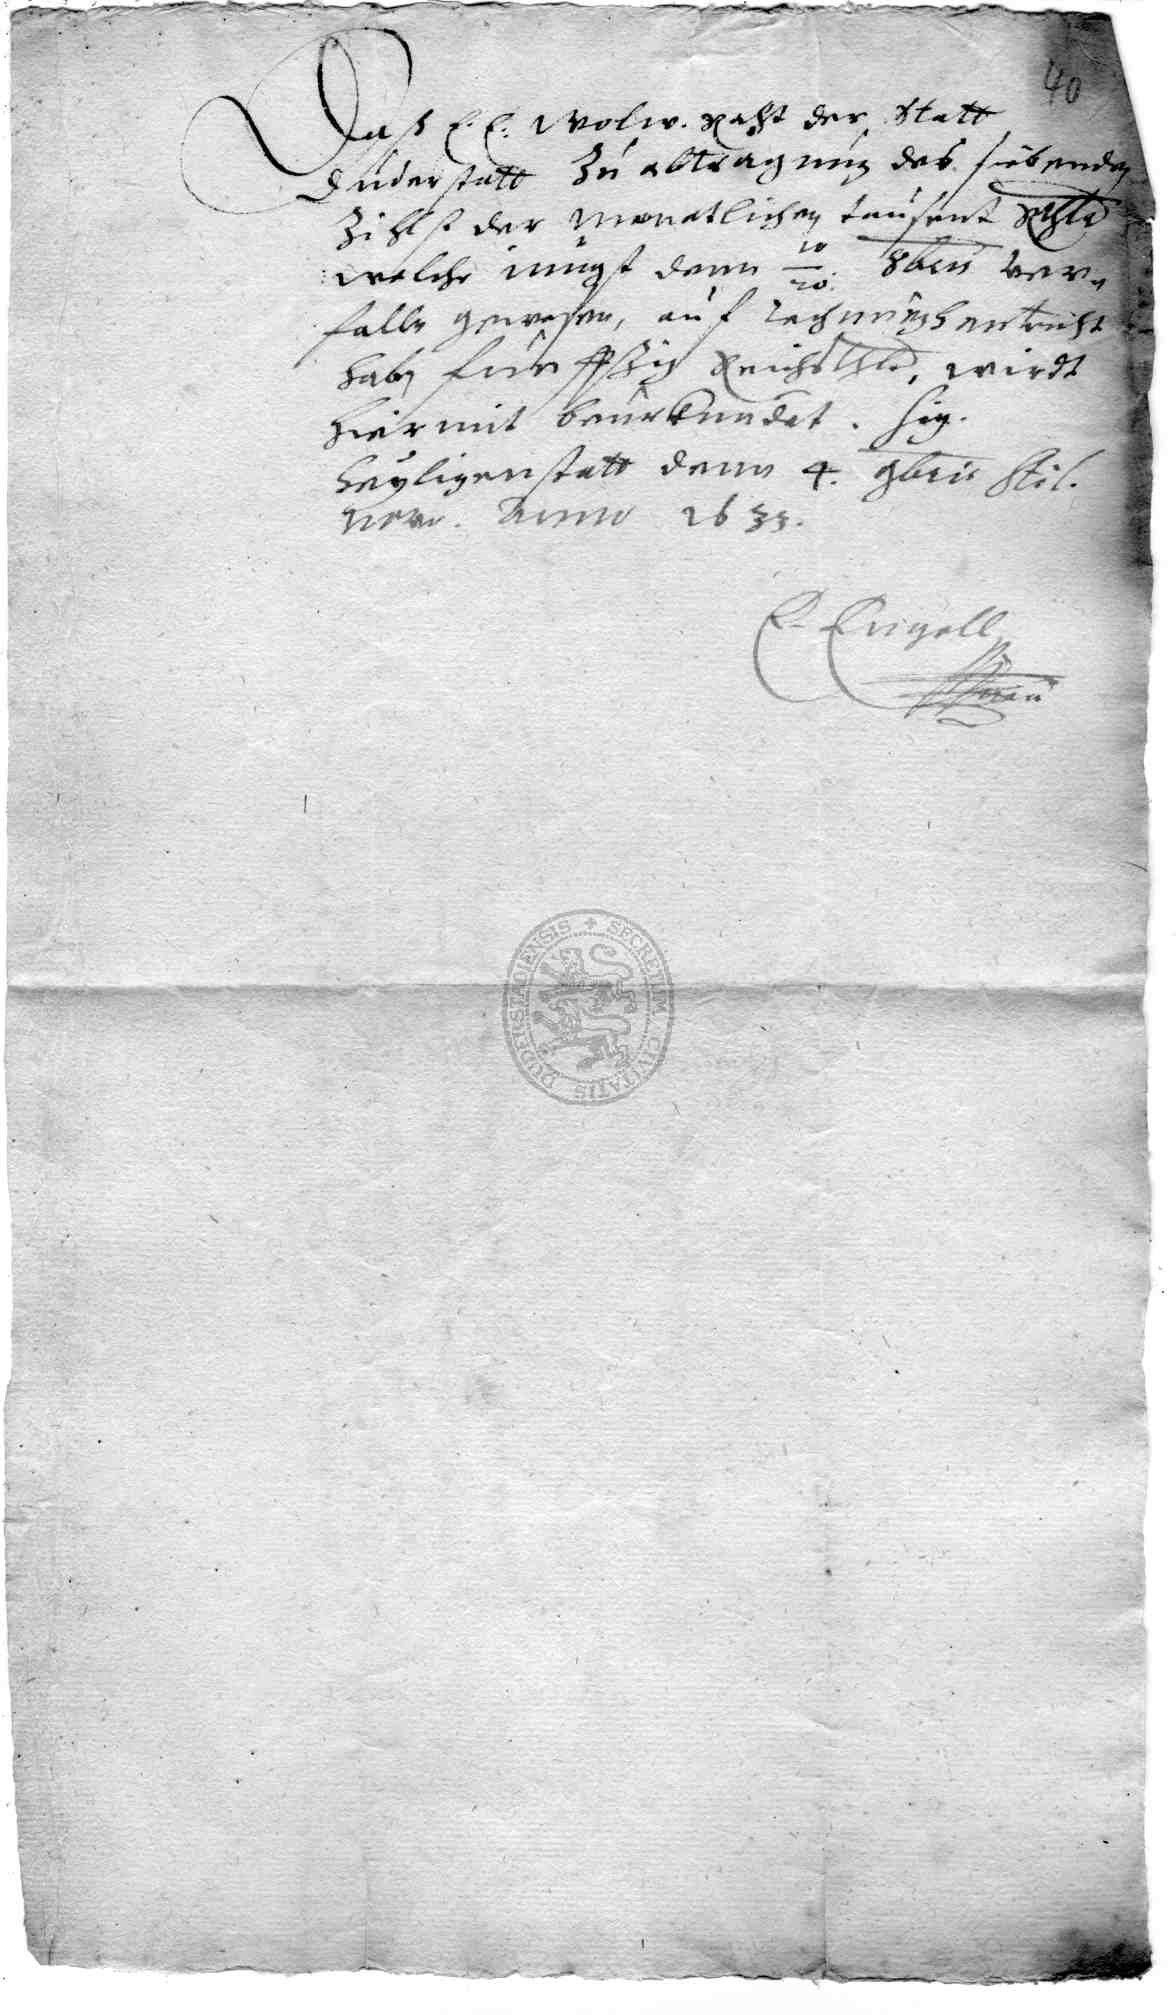 40
Daß E. E. Wolw. Raht der Statt
Duderstatt Zu abtragung des siebenden
Zihlß der Monatlichen tausent Rthlr
welche iüngst denn 10/20. 8bris ver-
falln gewesen, auf rechnungh entricht
hab fünffzig Reichsthlr, wirdt
hiermit beurkundet. Sig.
Heyligenstatt denn 4. 9bris Stil.
novo. Anno 1633.
E. Engell
SECRETUM CIVITATIS DUDERSTADIENSIS